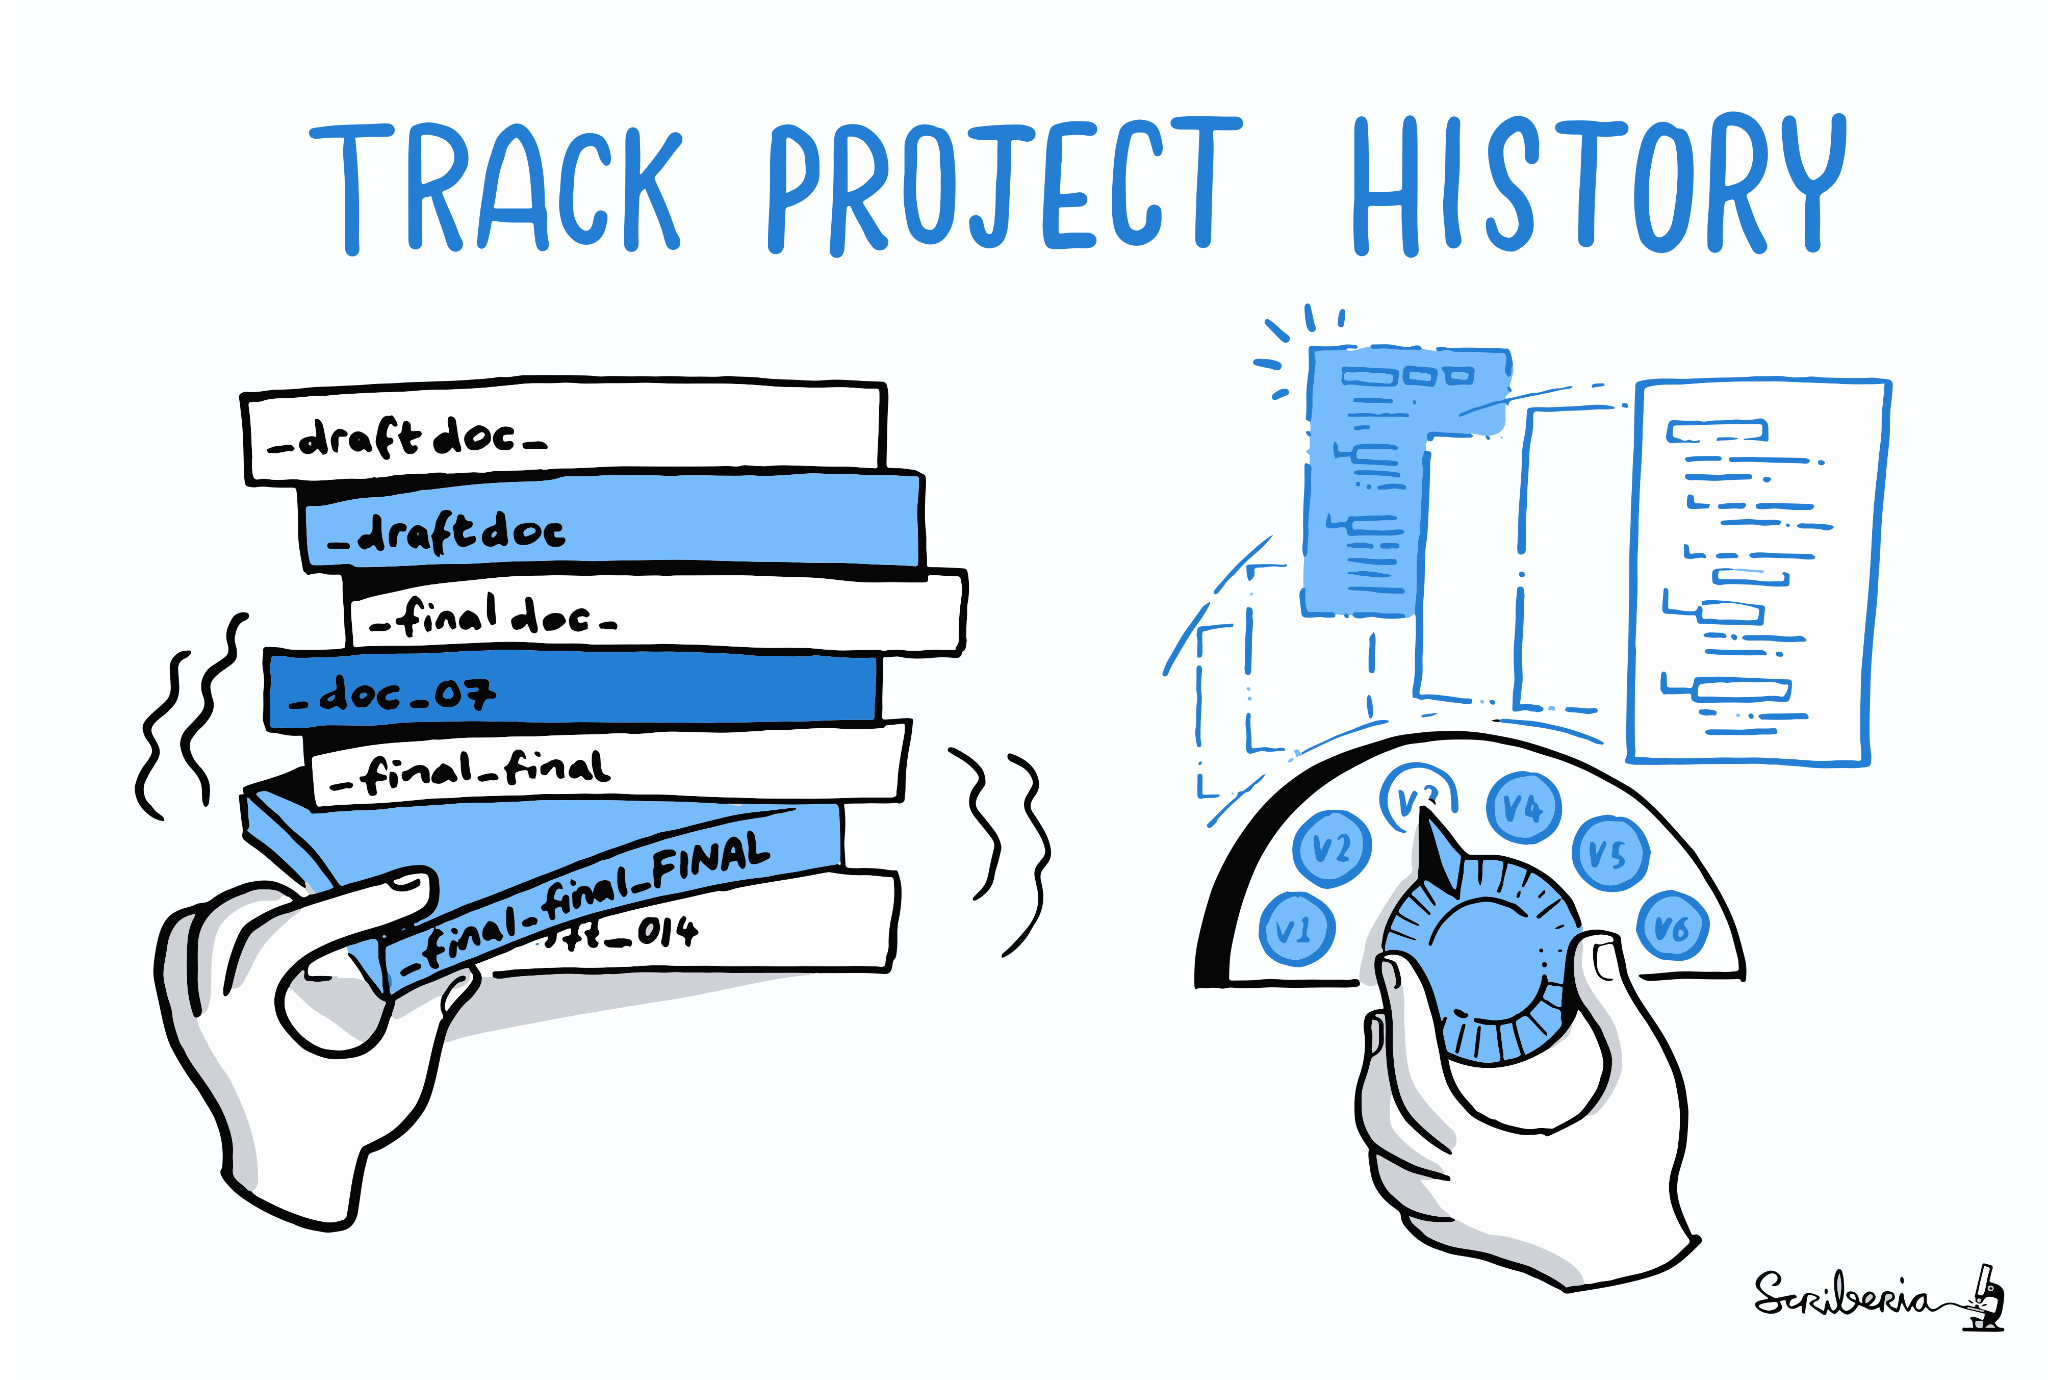 TRACK PROJECT HISTORY
_draft doc_
_draft doc
_final doc_
_doc_07
_final_final
_final_final_FINAL
_014
v1
v2
v3
v4
v5
v6
Scriberia